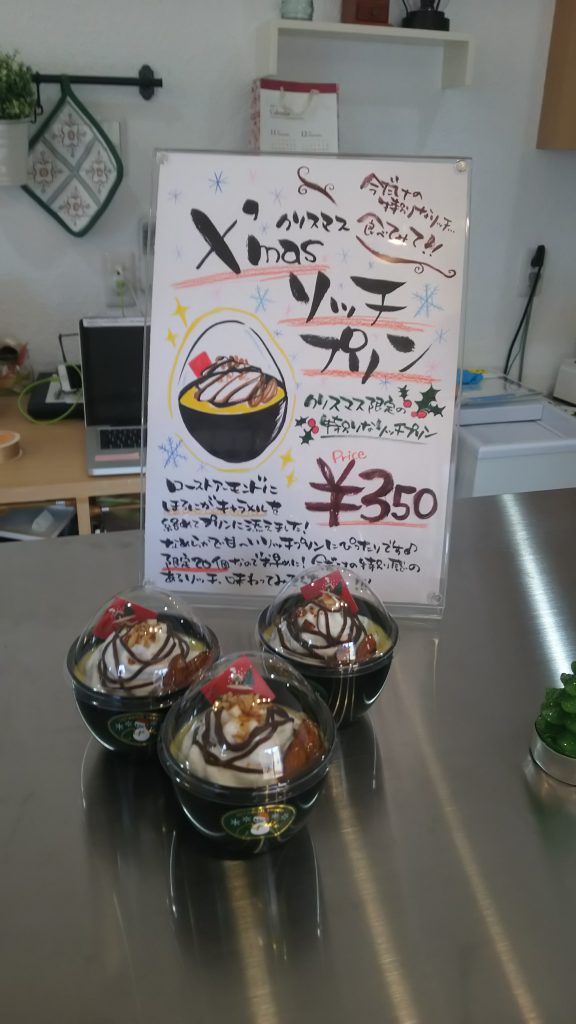 今だけの
特別なリッチ…
食べてみて!!
クリスマス
X'mas
リッチ
プリン
クリスマス限定の
特別なリッチプリン
Price
¥350
ローストアーモンドに
ほろにがキャラメルを
絡めてプリンに添えました!
なめらかで甘〜いリッチプリンにぴったりです♪
限定20個なのでお早めに!
あるリッチ、味わってみて